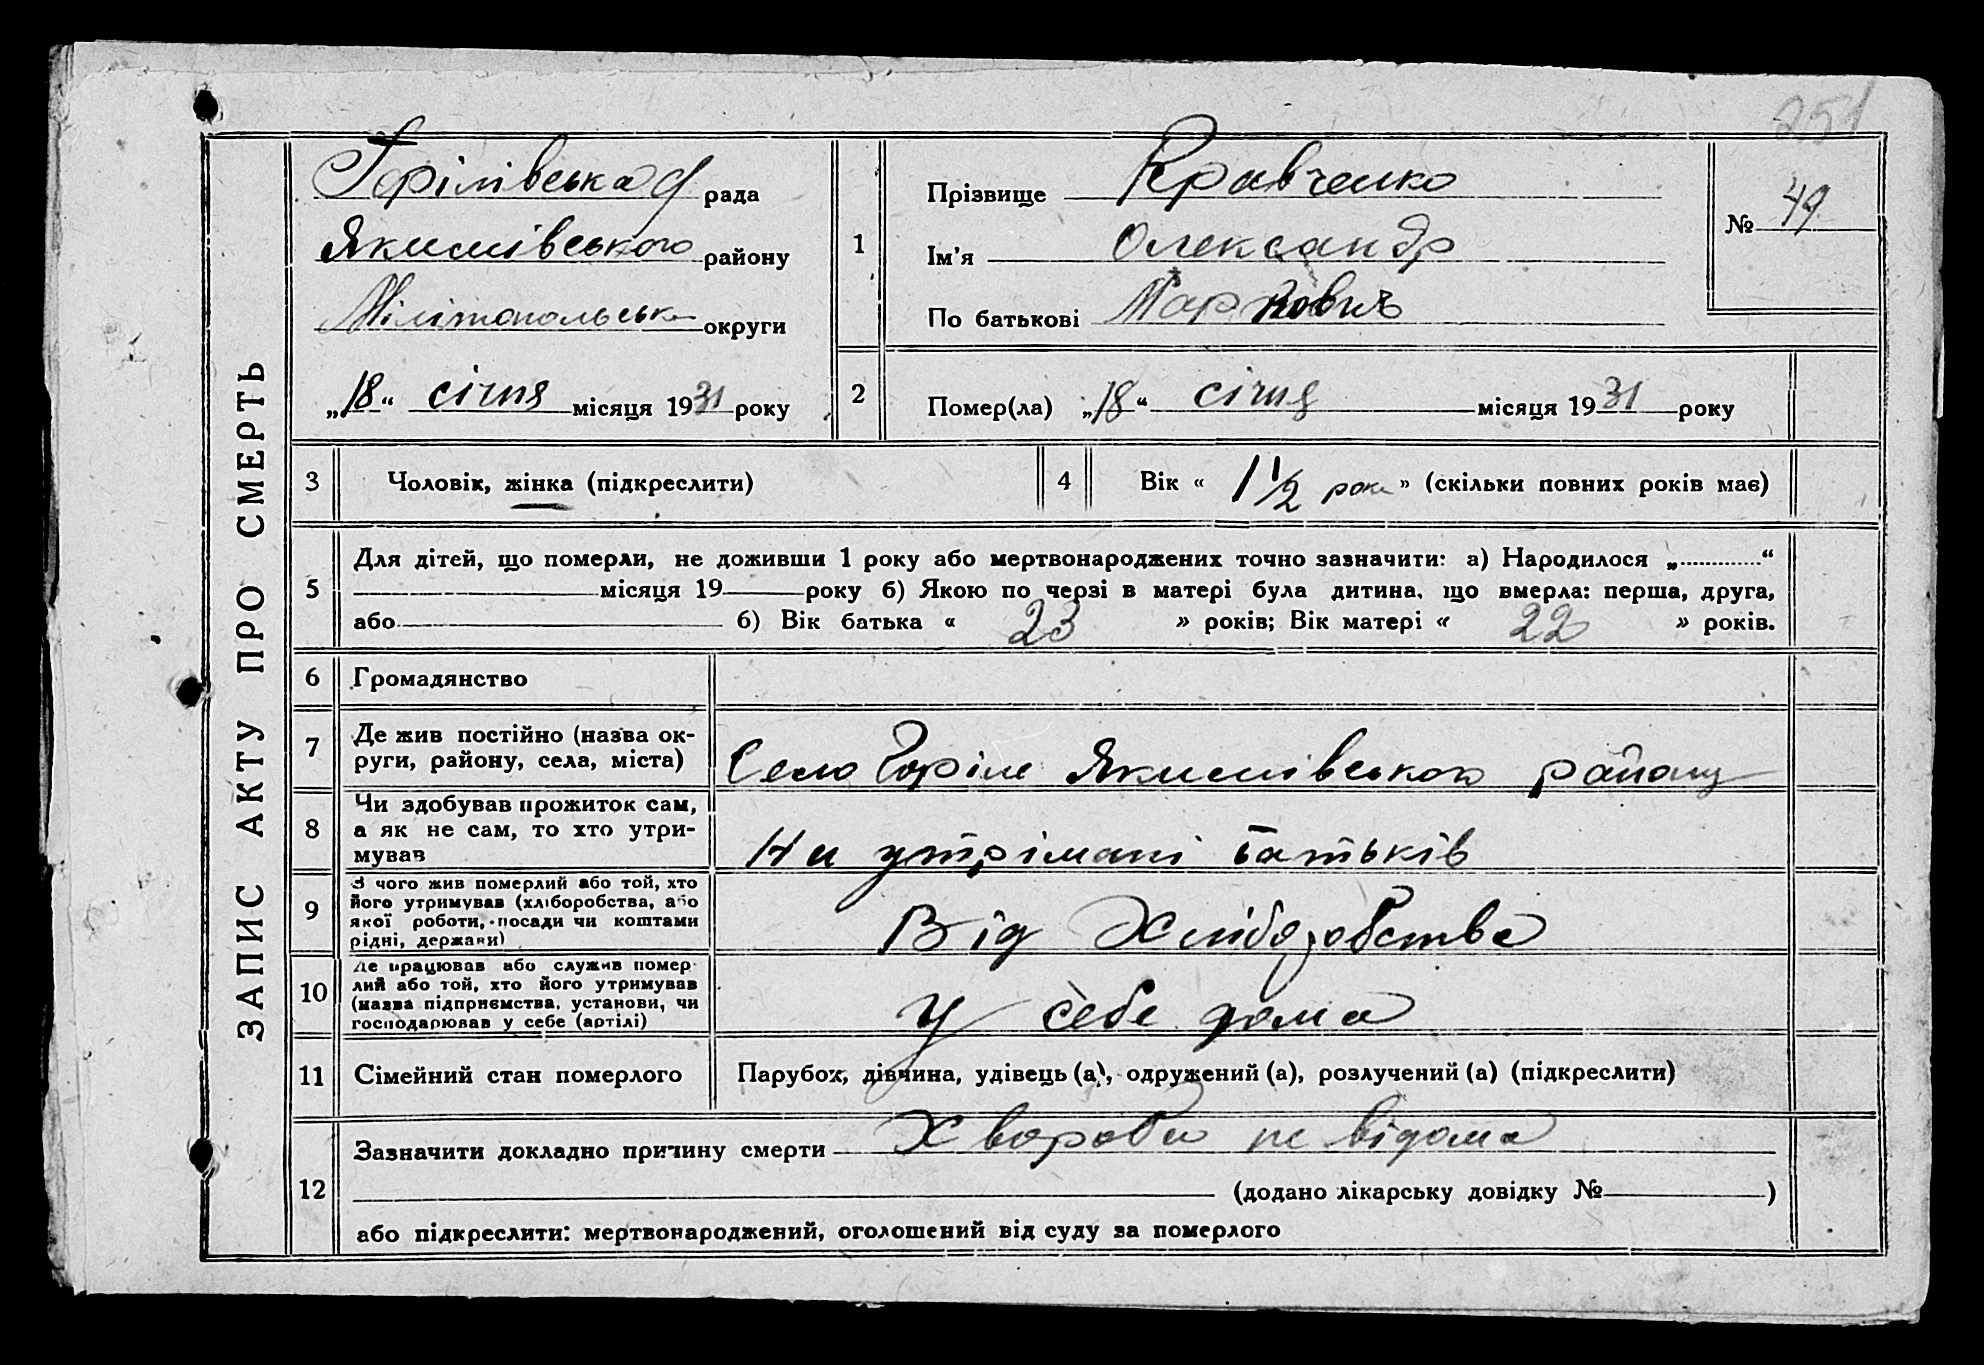 251
ЗАПИС АКТУ ПРО СМЕРТЬ
Горілівська рада
Якимівського району
Мілітопольськ округи
„18“ січня місяця 1931 року
1
Прізвище Кравченко
Ім'я Олександр
По батькові Маркович
№ 49
2
Помер(ла) „18“ січня місяця 1931 року
3 Чоловік, жінка (підкреслити)
4 Вік « 1 1/2 роки » (скільки повних років має)
5
Для дітей, що померли, не доживши 1 року або мертвонароджених точно зазначити: а) Народилося „ “
місяця 19 року б) Якою по черзі в матері була дитина, що вмерла: перша, друга,
або б) Вік батька « 23 » років; Вік матері « 22 » років.
6 Громадянство
7
Де жив постійно (назва ок-
руги, району, села, міста)
Село Горіле Якимівського району
8
Чи здобував прожиток сам,
а як не сам, то хто утри-
мував
На утрімані батьків
9
З чого жив померлий або той, хто
його утримував (хліборобства, або
якої роботи, посади чи коштами
рідні, держави)
Від Хліборобства
10
Де працював або служив помер-
лий або той, хто його утримував
(назва підприємства, установи, чи
господарював у себе (артілі)
У себе дома
11 Сімейний стан померлого
Парубок, дівчина, удівець (а), одружений (а), розлучений (а) (підкреслити)
12
Зазначити докладно причину смерти Хвороба не відома
(додано лікарську довідку № )
або підкреслити: мертвонароджений, оголошений від суду за померлого